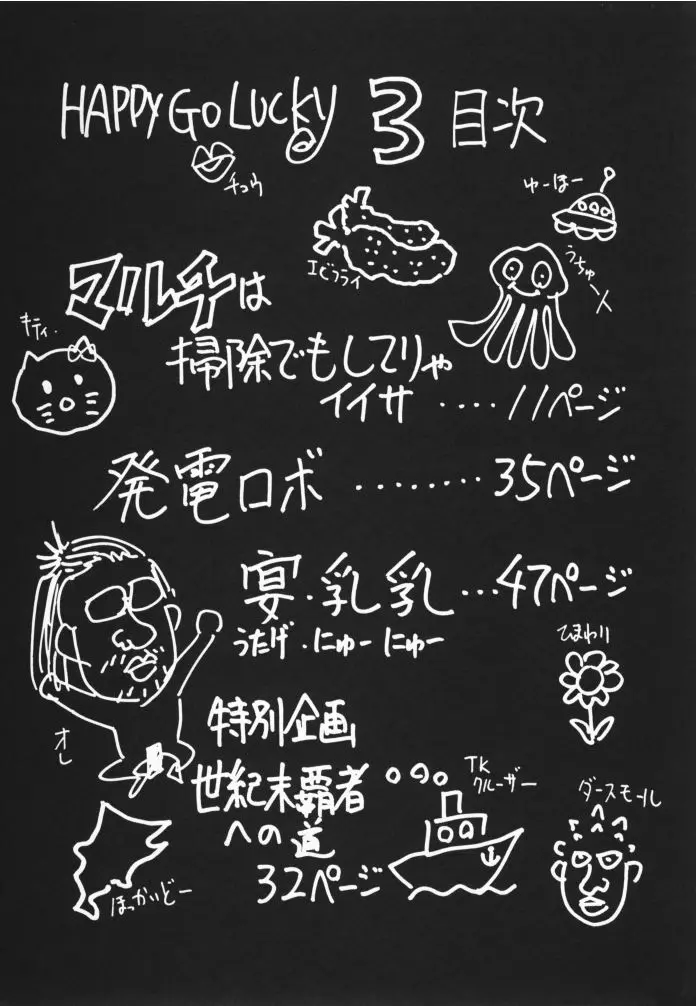 HAPPY GO LUCKY 3 目次
チュウ
ゆーほー
エビフライ
うちゅー人
マルチは
キティ.
掃除でもしてりゃ
イイサ ････11ページ
発電ロボ ････････35ページ
宴・乳乳 ･･･47ページ
うたげ・にゅーにゅー
ひまわり
オレ
特別企画
世紀末覇者
への道
32ページ
TK
クルーザー
ダースモール
ほっかいどー